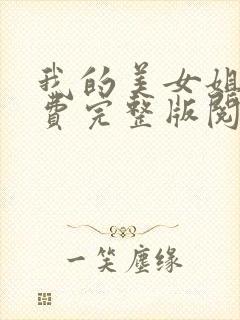 我的美女姐
費完整版閱
一笑塵缘